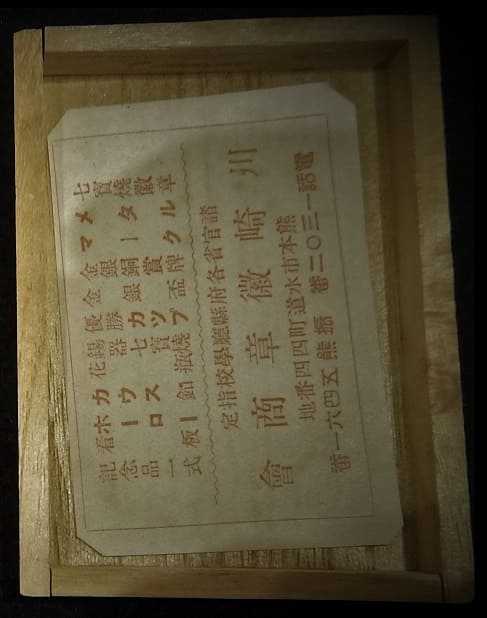 七寶燒徽章
メタル
マーク
金銀銅賞牌
金銀賞盃
優勝カップ
錫器七寶燒
花瓶
カウス釦
ホーロー看板
記念品一式
諸官省各府縣廳學校指定
川崎徽章商會
熊本市水道町四四番地
電話一三〇二番
振熊五四六一番